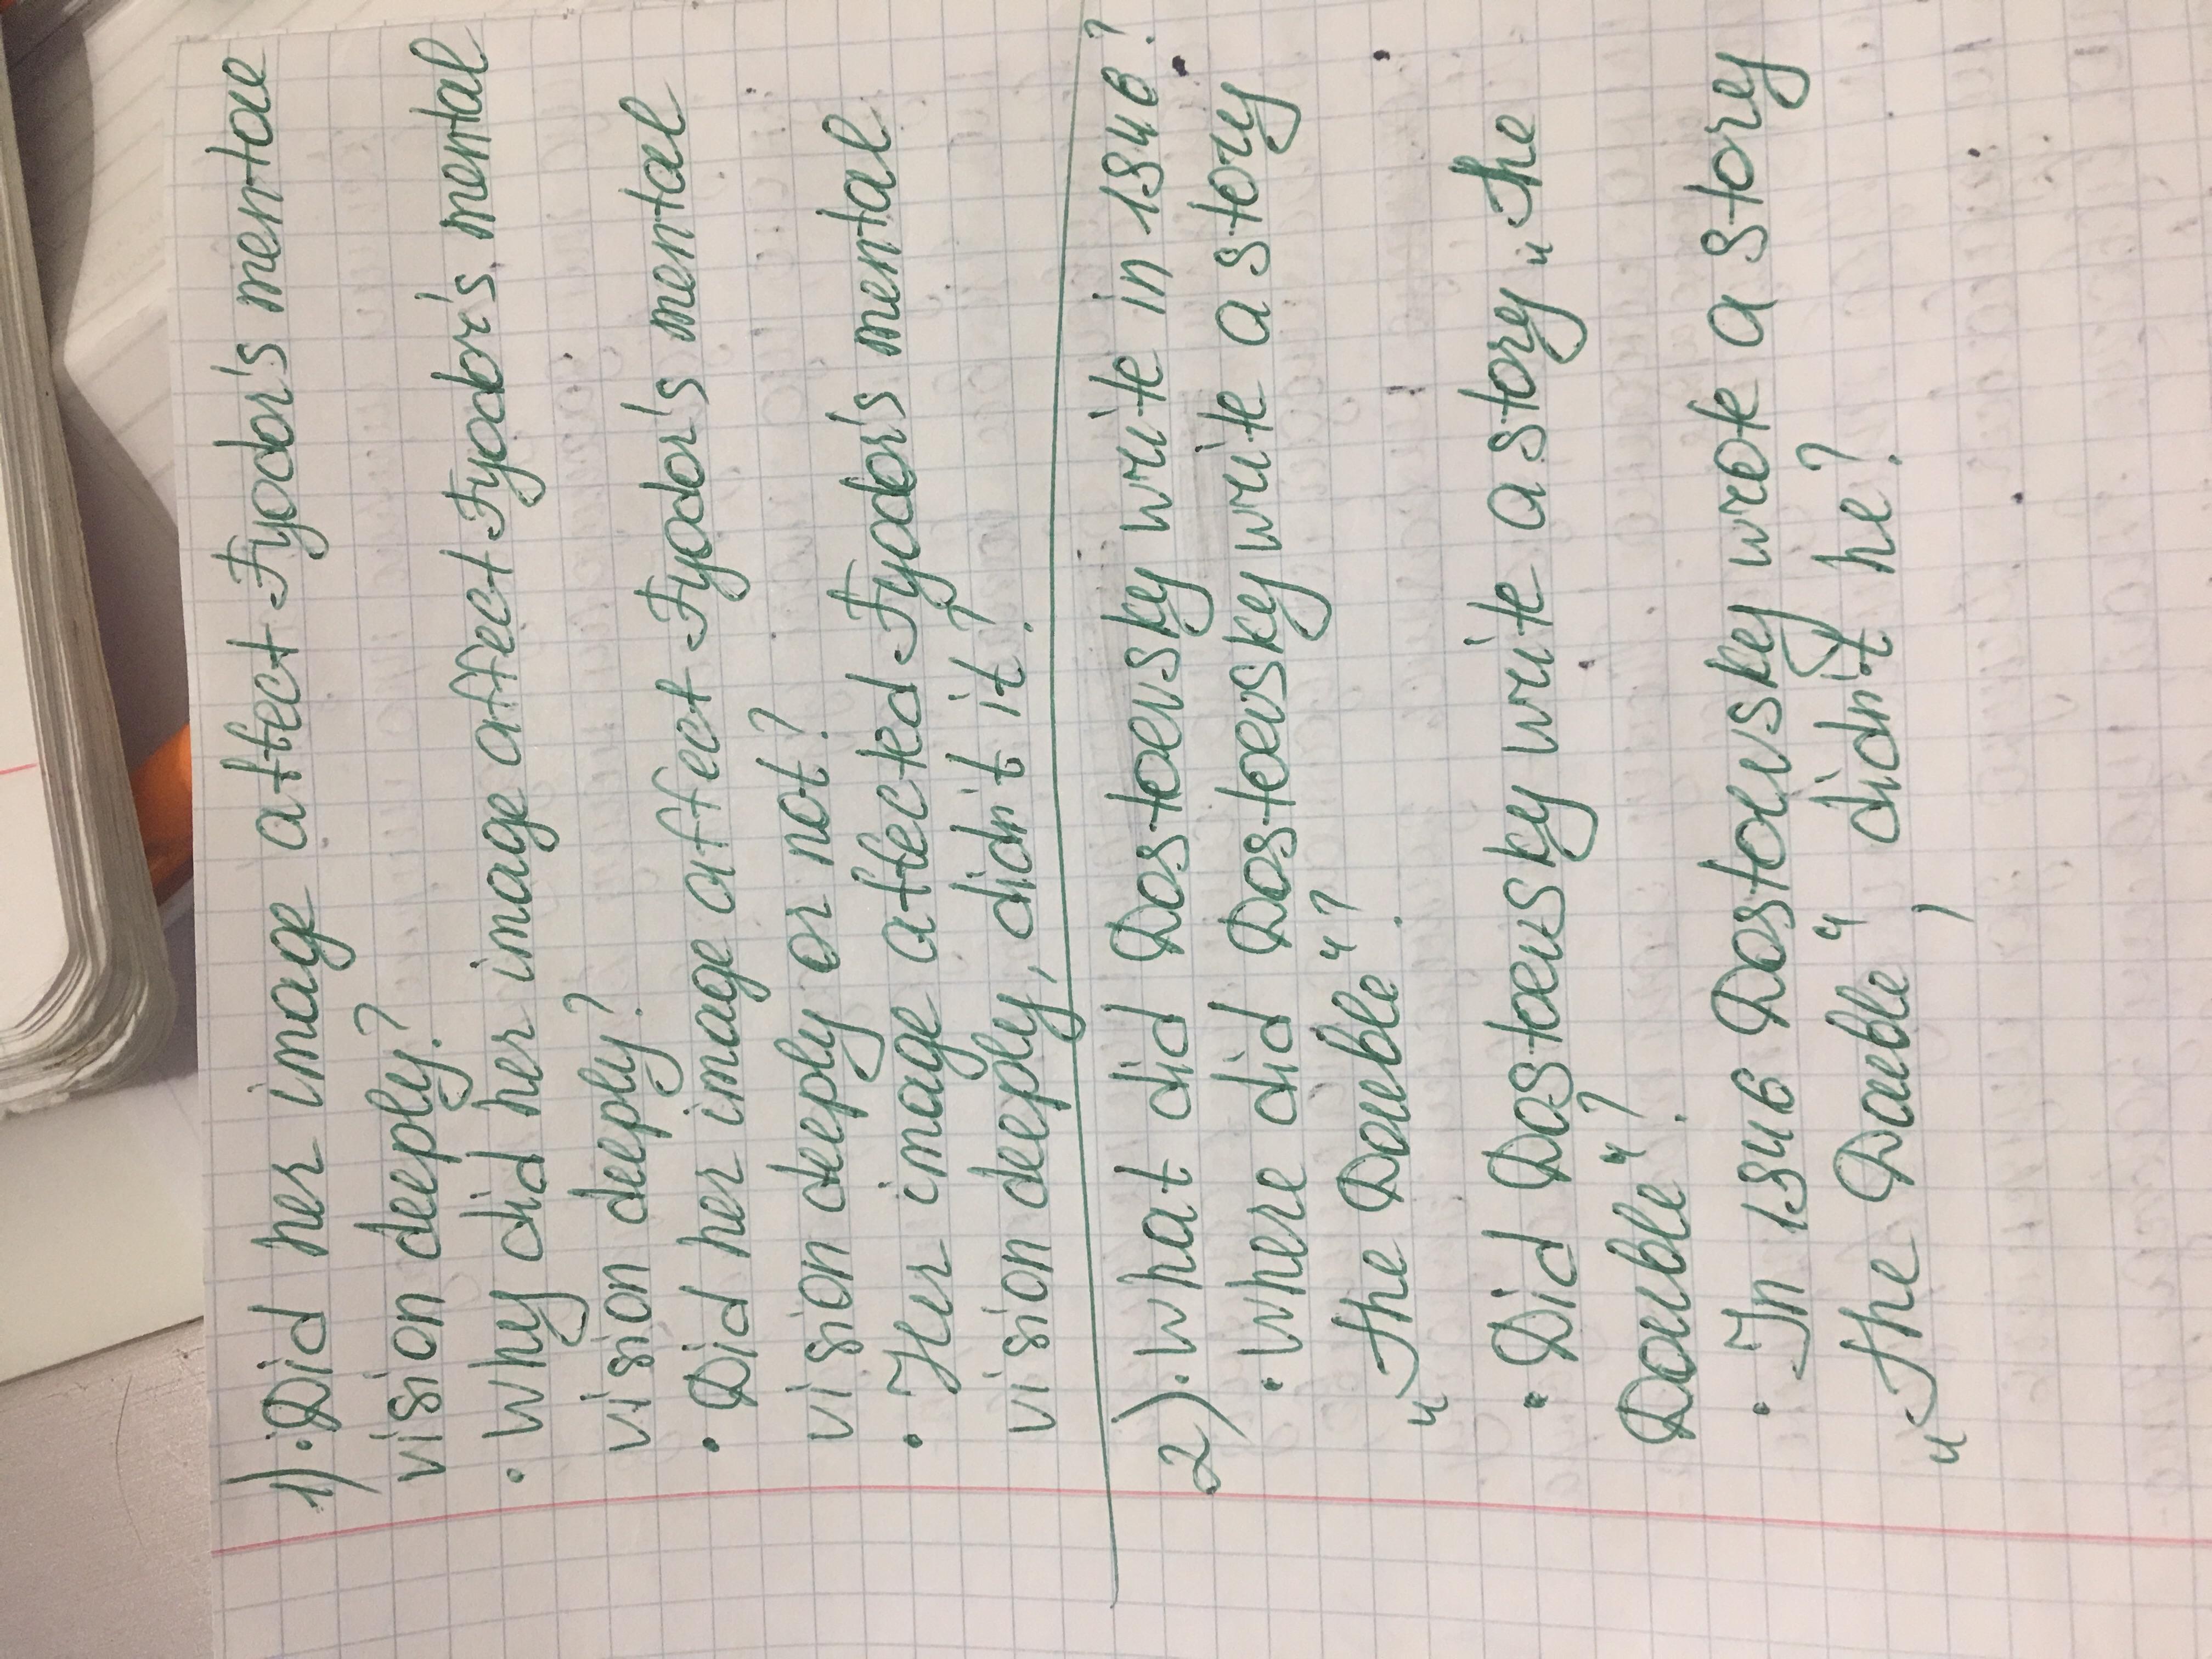 1)·Did her image affect Fyodor's mental
vision deeply?
· Why did her image affect Fyodor's mental
vision deeply?
· Did her image affect Fyodor's mental
vision deeply or not?
· Her image affected Fyodor's mental
vision deeply, didn't it?
2)·What did Dostoevsky write in 1846?
· Where did Dostoevsky write a story
„The Double“?
· Did Dostoevsky write a story „The
Double“?
· In 1846 Dostoevskey wrote a story
„The Double“, didn't he?